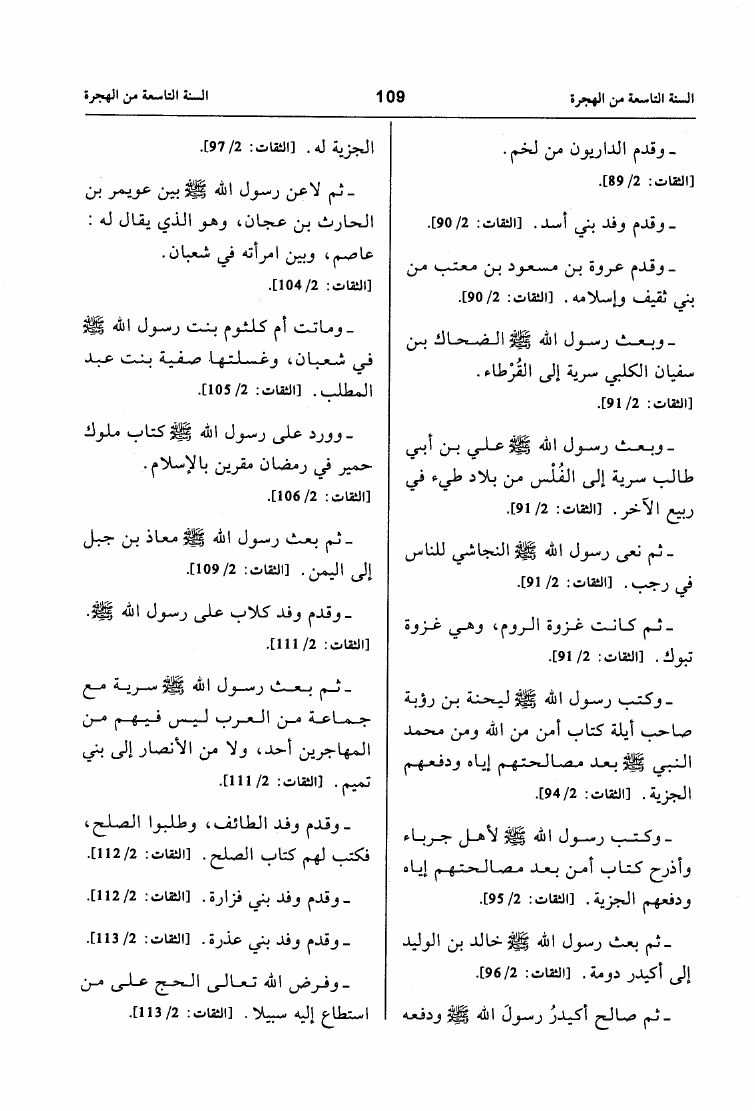 السنة التاسعة من الهجرة
109
السنة التاسعة من الهجرة
ـ وقدم الداريون من لخم.
[الثقات: 2/ 89].
ـ وقدم وفد بني أسد. [الثقات: 2/ 90].
ـ وقدم عروة بن مسعود بن معتب من
بني ثقيف وإسلامه. [الثقات: 2/ 90].
ـ وبعث رسول الله ﷺ الضحاك بن
سفيان الكلبي سرية إلى القُرْطاء.
[الثقات: 2/ 91].
ـ وبعث رسول الله ﷺ علي بن أبي
طالب سرية إلى الفُلْس من بلاد طيء في
ربيع الآخر. [الثقات: 2/ 91].
ـ ثم نعى رسول الله ﷺ النجاشي للناس
في رجب. [الثقات: 2/ 91].
ـ ثم كانت غزوة الروم، وهي غزوة
تبوك. [الثقات: 2/ 91].
ـ وكتب رسول الله ﷺ ليحنة بن رؤبة
صاحب أيلة كتاب أمن من الله ومن محمد
النبي ﷺ بعد مصالحتهم إياه ودفعهم
الجزية. [الثقات: 2/ 94].
ـ وكتب رسول الله ﷺ لأهل جرباء
وأذرح كتاب أمن بعد مصالحتهم إياه
ودفعهم الجزية. [الثقات: 2/ 95].
ـ ثم بعث رسول الله ﷺ خالد بن الوليد
إلى أكيدر دومة. [الثقات: 2/ 96].
ـ ثم صالح أكيدرُ رسولَ الله ﷺ ودفعه
الجزية له. [الثقات: 2/ 97].
ـ ثم لاعن رسول الله ﷺ بين عويمر بن
الحارث بن عجان، وهو الذي يقال له:
عاصم، وبين امرأته في شعبان.
[الثقات: 2/ 104].
ـ وماتت أم كلثوم بنت رسول الله ﷺ
في شعبان، وغسلتها صفية بنت عبد
المطلب. [الثقات: 2/ 105].
ـ وورد على رسول الله ﷺ كتاب ملوك
حمير في رمضان مقرين بالإسلام.
[الثقات: 2/ 106].
ـ ثم بعث رسول الله ﷺ معاذ بن جبل
إلى اليمن. [الثقات: 2/ 109].
ـ وقدم وفد كلاب على رسول الله ﷺ.
[الثقات: 2/ 111].
ـ ثم بعث رسول الله ﷺ سرية مع
جماعة من العرب ليس فيهم من
المهاجرين أحد، ولا من الأنصار إلى بني
تميم. [الثقات: 2/ 111].
ـ وقدم وفد الطائف، وطلبوا الصلح،
فكتب لهم كتاب الصلح. [الثقات: 2/ 112].
ـ وقدم وفد بني فزارة. [الثقات: 2/ 112].
ـ وقدم وفد بني عذرة. [الثقات: 2/ 113].
ـ وفرض الله تعالى الحج على من
استطاع إليه سبيلا. [الثقات: 2/ 113].